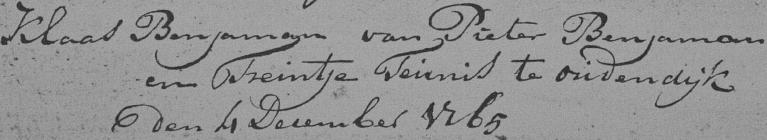 Klaas Benjaman van Pieter Benjaman
en Treintje Teunis te oudendijk
den 4 December 1765